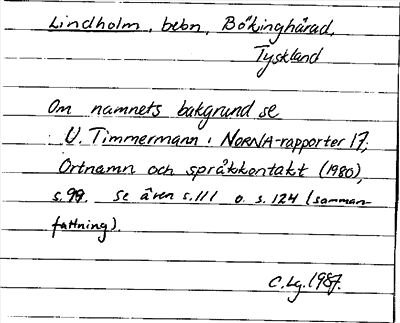 Lindholm, bebn, Bökinghärad,
Tyskland
Om namnets bakgrund se
U. Timmermann i NORNA-rapporter 17;
Ortnamn och språkkontakt (1980),
s. 99. Se även s. 111 o. s. 124 (samman-
fattning).
C. Lg. 1987.